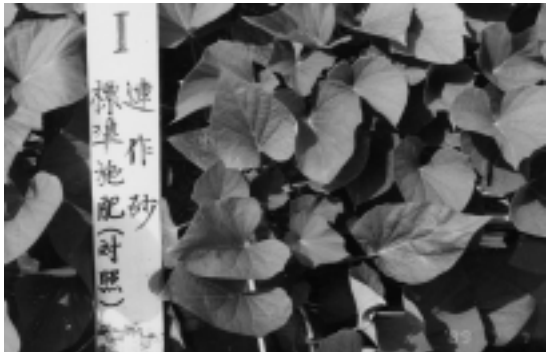 I
連作砂
標準施肥(対照)